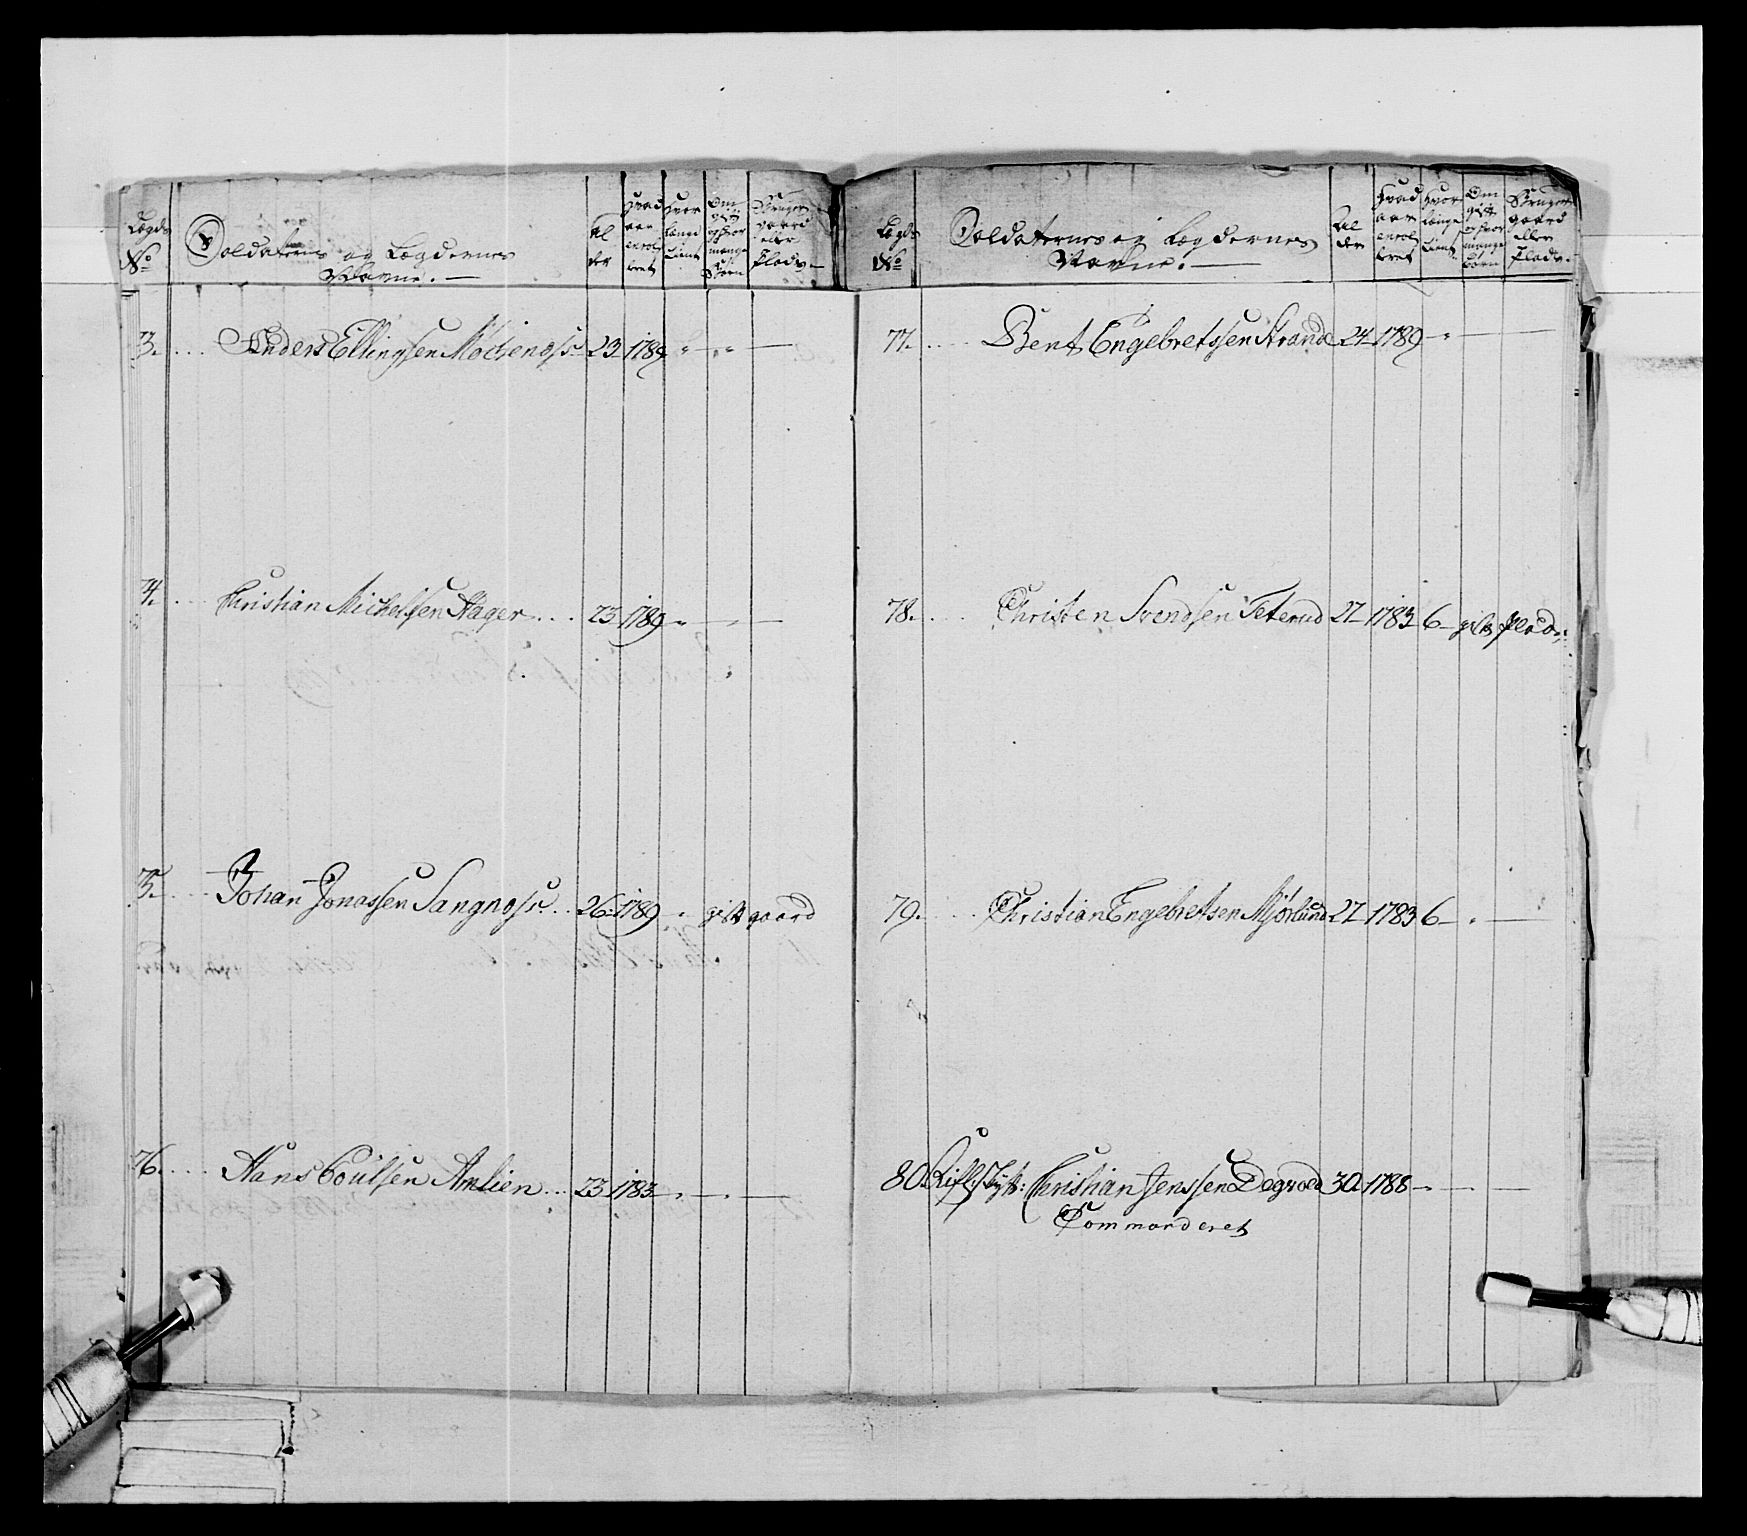 Lægds No
Soldaternes og Lægdernes Navne.
Al der
Hvad aar enrol leret
Hvor længe tient
Om gift og hvor mange Børn
Bruger gaard eller Plads.
3. Anders Ellingsen 23 1789
74. Christian Michelsen Hager 23 1789
75. Johan Jonassen Sangnæss 26 1789 gift gaard
76. Hans Poulsen Amlien 23 1783
Lægds No
Soldaternes og Lægdernes Navne.
Al der
Hvad aar enrol leret
Hvor længe tient
Om gift og hvor mange Børn
Bruger gaard eller Plads.
77. Bent Engebretssen Strande 24 1789
78. Christen Svendsen Teterud 27 1783 6 gift plads
79. Christian Engebretsen Mjørlund 27 1783 6
80. Christian Jenssen Degrud 30 1788
Commanderet